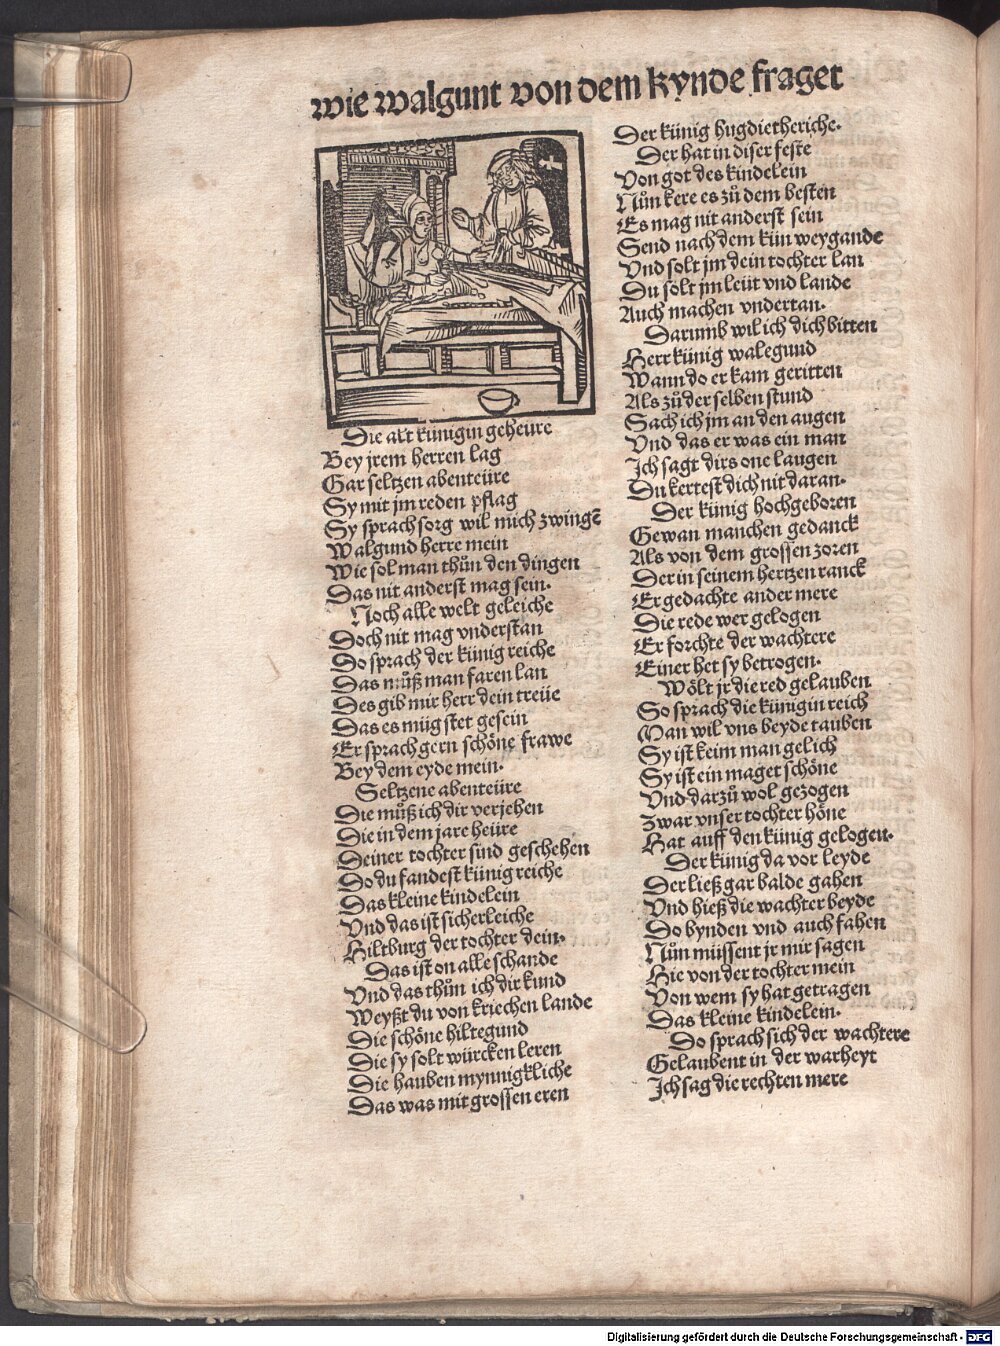 wie walgunt von dem kynde fraget
Die alt künigin geheure
Bey jrem herren lag
Gar seltzen abenteüre
Sy mit jm reden pflag
Sy sprach sorg wil mich zwingē
Walgund herre mein
Wie sol man thůn den dingen
Das nit anderst mag sein.
Noch alle welt geleiche
Doch nit mag vnderstan
Do sprach der künig reiche
Das můß man faren lan
Des gib mir herr dein treüe
Das es müg stet gesein
Er sprach gern schöne frawe
Bey dem eyde mein.
Seltzene abenteüre
Die můß ich dir verjehen
Die in dem jare heüre
Deiner tochter sind geschehen
Do du fandest künig reiche
Das kleine kindelein
Vnd das ist sicherleiche
Hiltburg der tochter dein.
Das ist on alle schande
Vnd das thůn ich dir kund
Weyßt du von kriechen lande
Die schöne hiltegund
Die sy solt würcken leren
Die hauben mynnigkliche
Das was mit grossen eren
Der künig hugdietheriche.
Der hat in diser feste
Von got des kindelein
Nůn kere es zů dem besten
Es mag nit anderst sein
Send nach dem kün weygande
Vnd solt jm dein tochter lan
Du solt jm leüt vnd lande
Auch machen vndertan.
Darumb wil ich dich bitten
Herr künig walegund
Wann do er kam geritten
Als zů der selben stund
Sach ich jm an den augen
Vnd das er was ein man
Ich sagt dirs one laugen
Du kertest dich nit daran.
Der künig hochgeboren
Gewan manchen gedanck
Als von dem grossen zoren
Der in seinem hertzen ranck
Er gedachte ander mere
Die rede wer gelogen
Er forchte der wachtere
Einer het sy betrogen.
Wölt jr die red gelauben
So sprach die künigin reich
Man wil vns beyde tauben
Sy ist keim man gelich
Sy ist ein maget schöne
Vnd darzů wol gezogen
Zwar vnser tochter höne
Hat auff den künig gelogen.
Der künig da vor leyde
Der ließ gar balde gahen
Vnd hieß die wachter beyde
Do bynden vnd auch fahen
Nůn müssent jr mir sagen
Hie von der tochter mein
Von wem sy hat getragen
Das kleine kindelein.
Do sprach sich der wachtere
Gelaubent in der warheyt
Ich sag die rechten mere
Digitalisierung gefördert durch die Deutsche Forschungsgemeinschaft - DFG